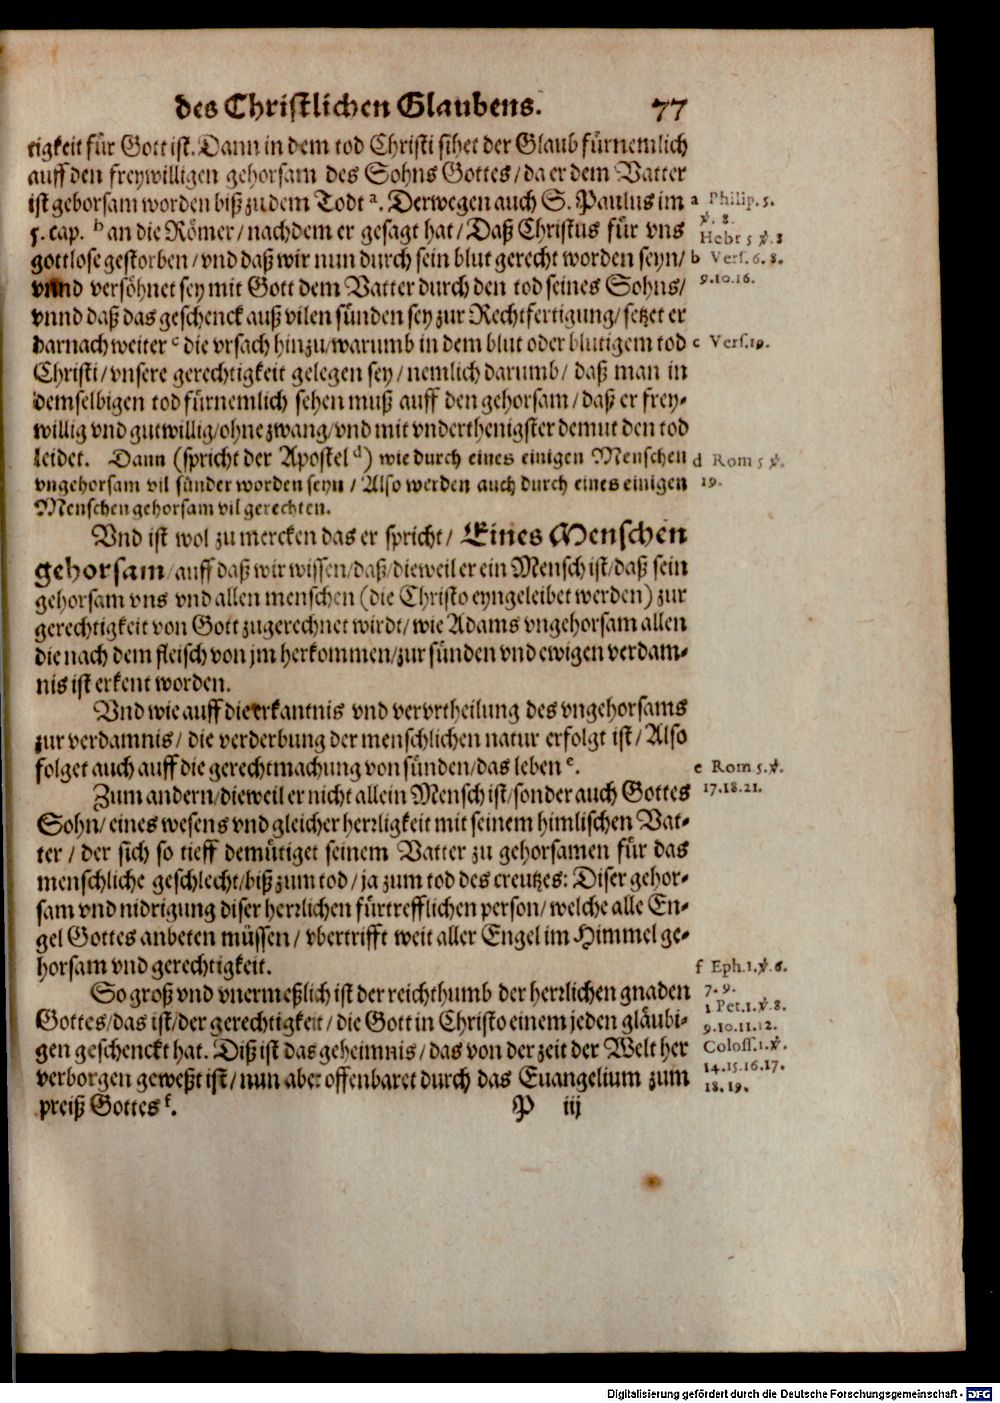 des Christlichen Glaubens. 77
tigkeit für Gott ist. Dann in dem tod Christi sihet der Glaub fürnemlich
auff den freywilligen gehorsam des Sohns Gottes/ da er dem Vatter
ist gehorsam worden biß zu dem Todt a. Derwegen auch S. Paulus im
5. cap. b an die Römer/ nachdem er gesagt hat/ Daß Christus für vns
gottlose gestorben/ vnd daß wir nun durch sein blut gerecht worden seyn/
vnnd versöhnet sey mit Gott dem Vatter durch den tod seines Sohns/
vnnd daß das geschenck auß vilen sünden sey zur Rechtfertigung/ setzet er
darnach weiter c die vrsach hinzu/ warumb in dem blut oder blutigem tod
Christi/ vnsere gerechtigkeit gelegen sey/ nemlich darumb/ daß man in
demselbigen tod fürnemlich sehen muß auff den gehorsam/ daß er frey-
willig vnd gutwillig/ ohne zwang/ vnd mit vnderthenigster demut den tod
leidet. Dann (spricht der Apostel d) wie durch eines einigen Menschen
vngehorsam vil sünder worden seyn/ Also werden auch durch eines einigen
Menschen gehorsam vil gerechten.
Vnd ist wol zu mercken das er spricht/ Eines Menschen
gehorsam/ auff daß wir wissen/ daß/ dieweil er ein Mensch ist/ daß sein
gehorsam vns vnd allen menschen (die Christo eyngeleibet werden) zur
gerechtigkeit von Gott zugerechnet wirdt/ wie Adams vngehorsam allen
die nach dem fleisch von jm herkommen/ zur sünden vnd ewigen verdam-
nis ist erkent worden.
Vnd wie auff die erkantnis vnd vervrtheilung des vngehorsams
zur verdamnis/ die verderbung der menschlichen natur erfolgt ist/ Also
folget auch auff die gerechtmachung von sünden/ das leben e.
Zum andern/ dieweil er nicht allein Mensch ist/ sonder auch Gottes
Sohn/ eines wesens vnd gleicher herrligkeit mit seinem himlischen Vat-
ter/ der sich so tieff demütiget seinem Vatter zu gehorsamen für das
menschliche geschlecht/ biß zum tod/ ja zum tod des creutzes: Diser gehor-
sam vnd nidrigung diser herrlichen fürtrefflichen person/ welche alle En-
gel Gottes anbeten müssen/ vbertrifft weit aller Engel im Himmel ge-
horsam vnd gerechtigkeit.
So groß vnd vnermeßlich ist der reichthumb der herrlichen gnaden
Gottes/ das ist/ der gerechtigkeit/ die Gott in Christo einem jeden gläubi-
gen geschenckt hat. Diß ist das geheimnis/ das von der zeit der Welt her
verborgen geweßt ist/ nun aber offenbaret durch das Euangelium zum
preiß Gottes f.
P iij
a Philip. 5.
℣. 8.
Hebr 5 ℣. 8
b Vers. 6. 8.
9. 10. 16.
c Vers. 19.
d Rom 5 ℣.
19.
e Rom 5. ℣.
17. 18. 21.
f Eph. 1. ℣. 6.
7. 9.
1 Pet. 1. ℣. 8.
9. 10. 11. 12.
Coloss. 1. ℣.
14. 15. 16. 17.
18. 19.
Digitalisierung gefördert durch die Deutsche Forschungsgemeinschaft - DFG